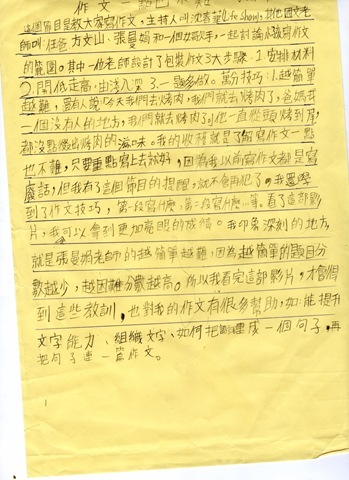 作文一點也不難
這個節目是教大家寫作文，主持人叫沈春華Life Show，其他國文老
師叫任爸、方文山、張曼娟和一個女歌手，一起討論小孩寫作文
的範圍。其中一位老師設計了包裝作文3大步驟：1.安排材料
2.開低走高，由淺入深3.一題多做。萬分技巧：1.越簡單
越難，要有人說今天我們去烤肉，我們就去烤肉了，爸媽找
一個沒有人的地方，我們就去烤肉了。他一直從頭烤到尾，
都沒點出烤肉的滋味。我的收穫就是了解寫作文一點
也不難，只要重點寫上去就好，因為我以前寫作文都是寫
廢話，但我有了這個節目的提醒，就不會再犯了。我還學
到了作文技巧，第一段寫什麼、第二段寫什麼…等。看了這部影
片，我可以拿到更加亮眼的成績。我印象深刻的地方，
就是張曼娟老師的越簡單越難，因為越簡單的題目分
數越少，越困難分數越高。所以我看完這部影片，才會得
到這些教訓，也對我的作文有很多幫助，如：能提升
文字能力、組織文字、如何把詞連成一個句子，再
把句子連一篇作文。